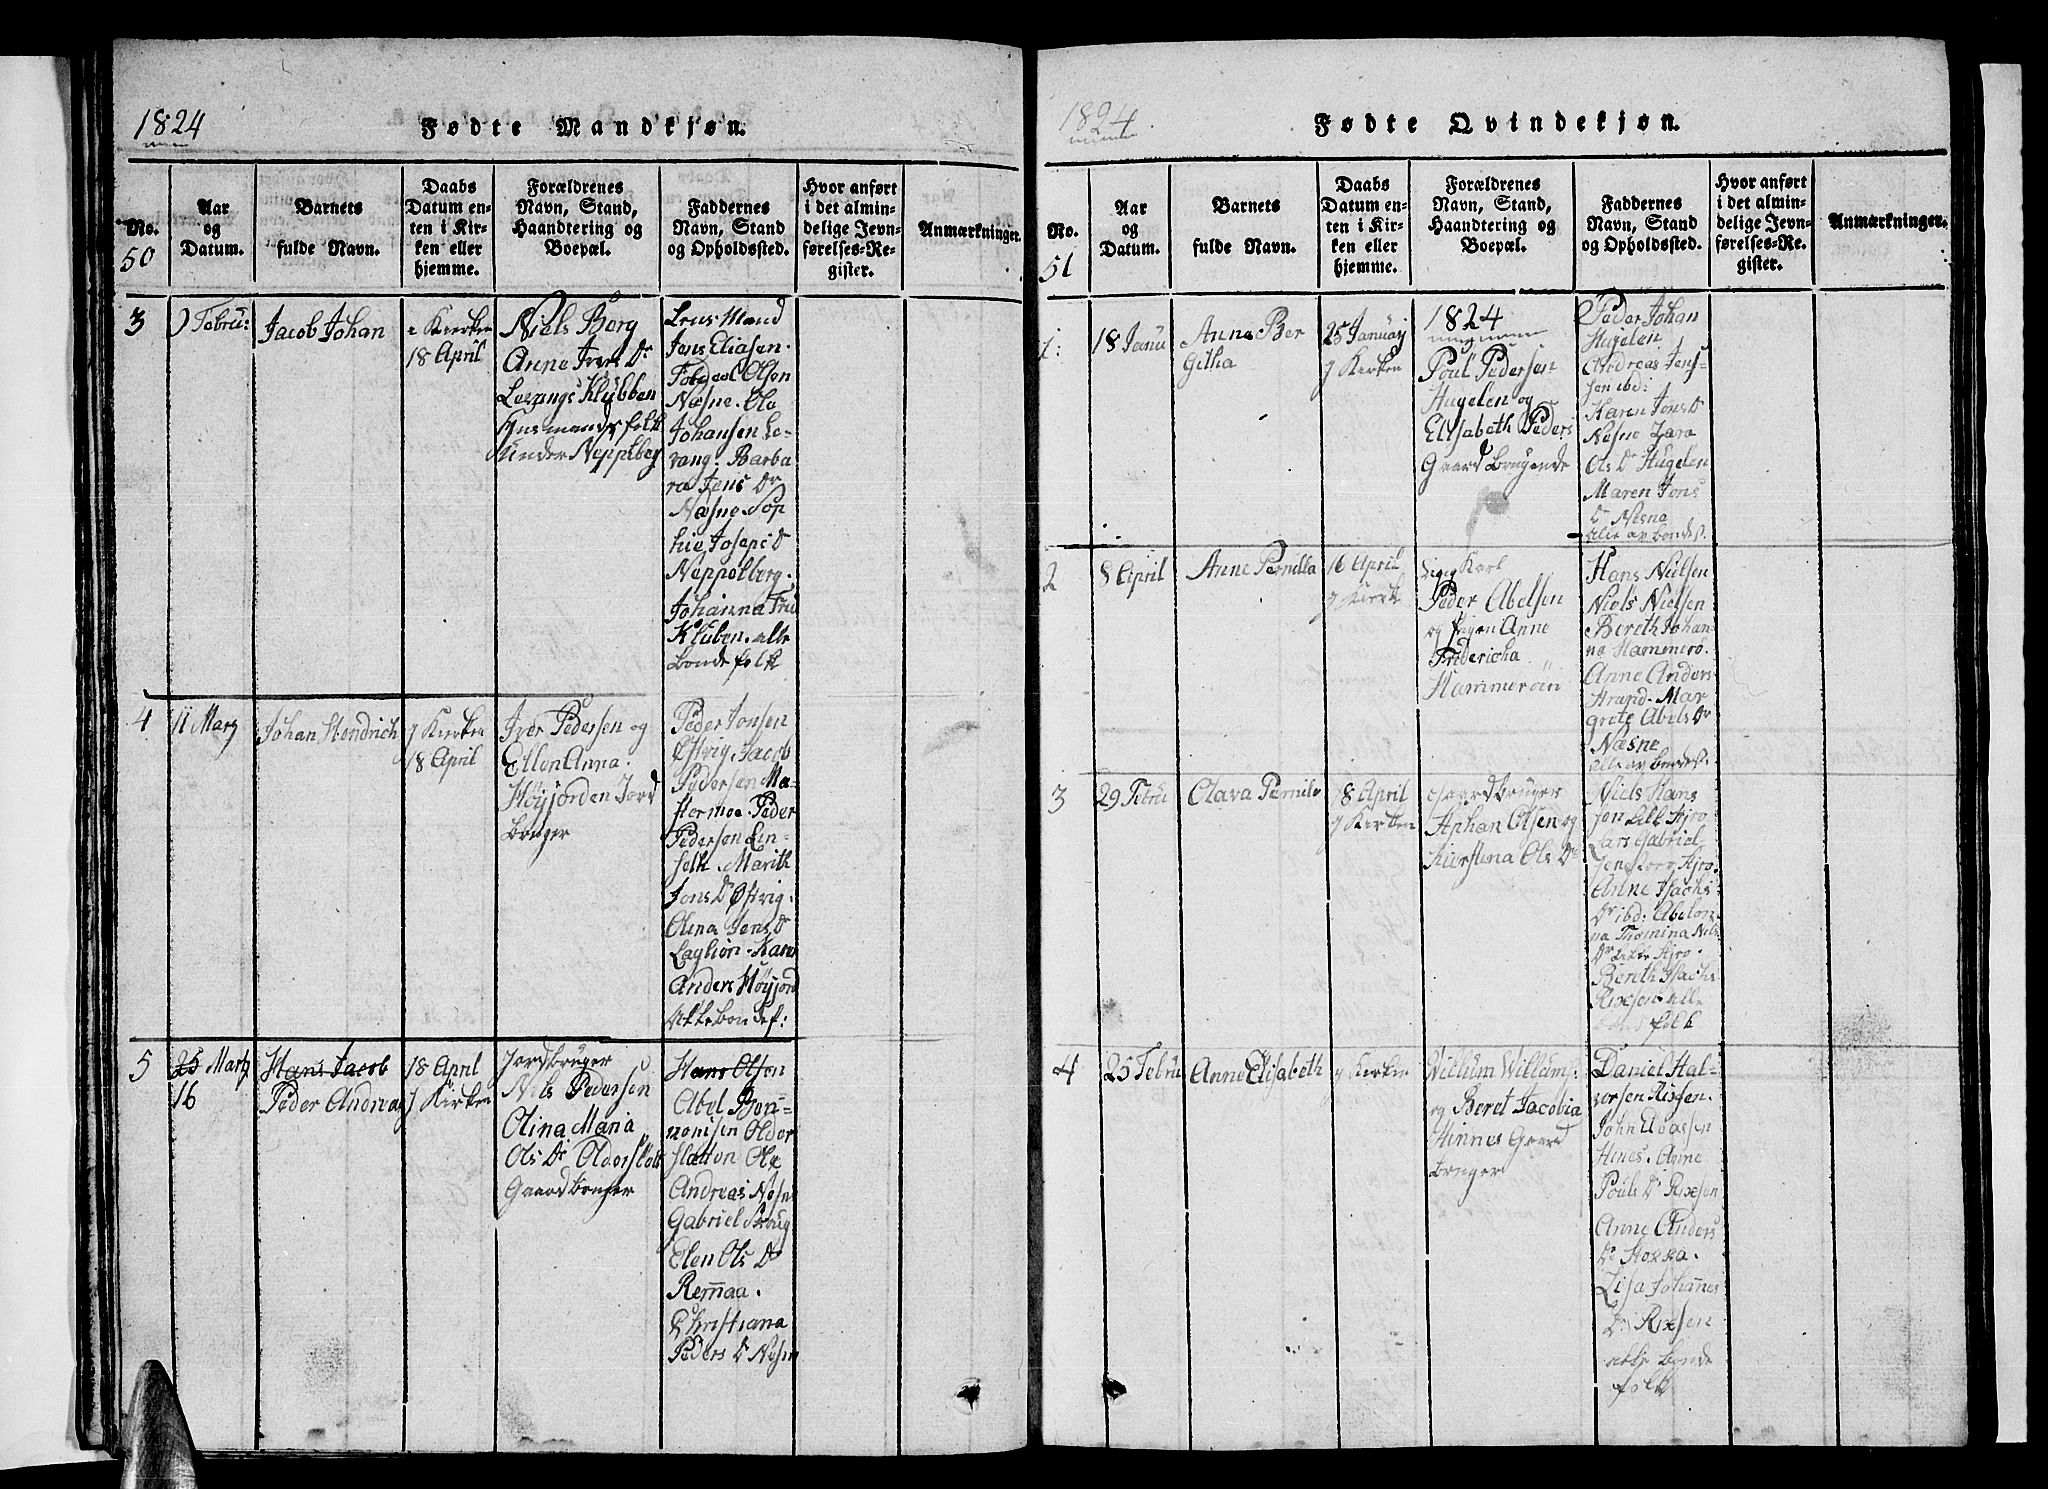 1824
Fødte Mandkjøn.
No.
50
Aar
og
Datum.
Barnets
fulde Navn.
Daabs
Datum en-
ten i Kir-
ken eller
hjemme.
Forældrenes
Navn, Stand,
Haandtering og
Boepæl.
Faddernes
Navn, Stand
og Opholdssted.
Hvor anført
i det almin-
delige Jevn-
førelses-Re-
gister.
Anmærkninger.
3
Febru:
Jacob Johan
Kierken
18 April
Niels Berg
Anne Ivers Dr
Levangs Klubben
Huusmandsfolk
under Neppelberg
Lensmand
Jens Eliasen.
Olsen
Næsne. Ole
Johansen Le-
vang. Barba
ra Jens Dr
Næsne. Sop
hie Joseps Dr
Neppelberg.
Johanna
Kluben. alle
bondefolk
4
11 Marz
Johan Hendrich
j Kierken
18 April
Iver Pedersen og
Ellen Anna
Høyjorden Jord
bruger
Peder Jonsen
Østvig. Jacob
Pedersen Ma-
Hermoe Peder
Pedersen Ein-
seth. Marith
Jons Dr Østvig.
Olina Jens Dr
Karen
Anders Høyjord
bondef:
5
25 Martz
16
Hans Jacob
Peder Andreas
18 April
j Kirken
Jordbruger
Niels Pedersen
Olina Maria
Ols Dr Olderskott
Gaardbruger
Hans Olsen
Abel Ben-
nonisen Older
sletten Ole
Andreas Nesn
Gabriel
Elen Ols Dr
Remaa.
Christiana
Peders D Nesne
1824
Fødte Qvindekjøn.
No.
51
Aar
og
Datum.
Barnets
fulde Navn.
Daabs
Datum en-
ten i Kir-
ken eller
hjemme.
Forældrenes
Navn, Stand,
Haandtering og
Boepæl.
Faddernes
Navn, Stand
og Opholdssted.
Hvor anført
i det almin-
delige Jevn-
førelses-Re-
gister.
Anmærkninger.
1:
18 Janu
Anne Ber
Githa
25 Januarj
j Kirken
1824
Poul Pedersen
Hugelen og
Elisabeth Peders
Gaardbrugende
Peder Johan
Hugelen
Andreas Jens-
sen ibd:
Karen Jons Dr
Nesne Zara
Ols Dr Hugelen
Maren Jons
Dr Nesna
alle av bondest.
2
8 April
Anne Pernilla
16 April
j Kierk
Karl
Peder Abelsen
og Pigen Anne
Fridericha
Hammerøen
Hans Nielsen
Niels Nielsen
Bereth Johan-
na Hammerø.
Anne Anders
Strand. Mar
grete Abels Dr
Næsne
alle av bondest.
3
29 Febru
Olava Pernile
18 April
j Kirken
Gaardbruger
Aphan Olsen og
Kierstena Ols Dr
Niels Hans
sen Lill Hjro
Lars Gabriel
Jens Hjro.
Anne Isachs
Dr ibd: Abelon
na Thomina Nils
Dr Hjro.
Bereth Isachs
alle
folk
4
25 Febru
Anne Elisabeth
j Kirken
Willum Willums:
og Beret Jacobia
Hinnes Gaard
bruger
Daniel Hal-
vorsen Risøen.
John
Hines. Anne
Pouls Dr Rixsøen
Anne Anders
Dr
Lisa Johannes
Dr Rixsøen
alle bonde
folk